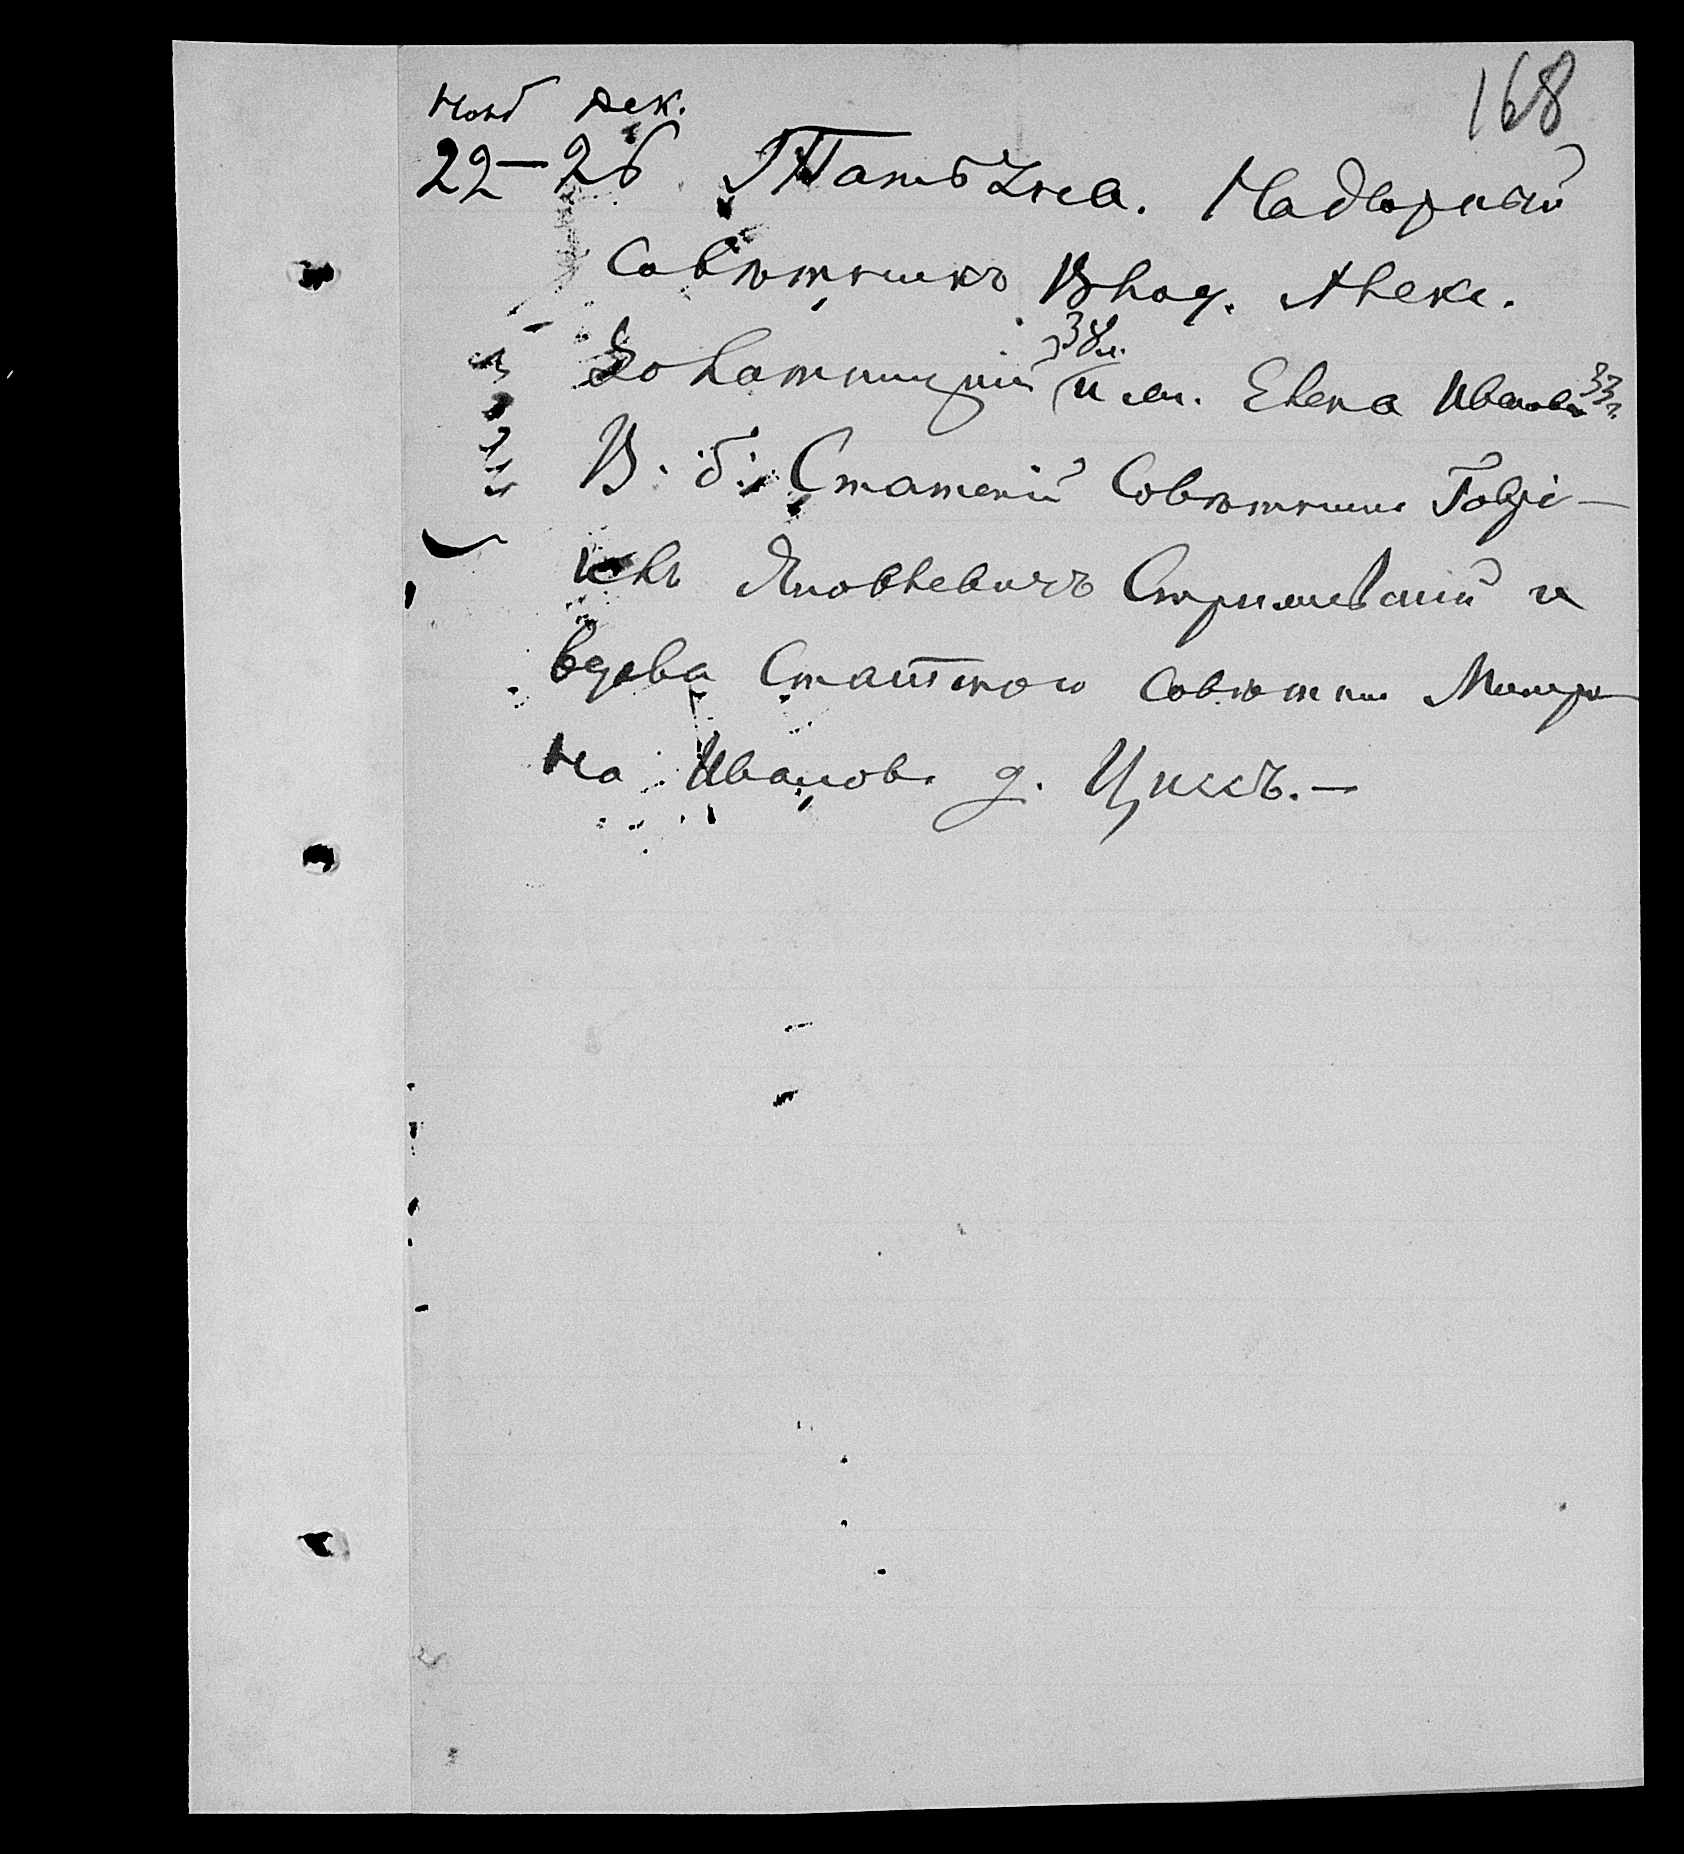 168
Нояб Дек.
22–26 Татьяна. Надворный
Совѣтникъ Влад. Алекс.
Золотницкій 38 л. и ж. Елена Иванова 33 л.
В. б: Статскій Совѣтникъ Гаврі-
илъ Яковлевичъ Стрижевскій и
вдова Статскаго совѣтни Мавр
на Иванов. д. Циссъ.—